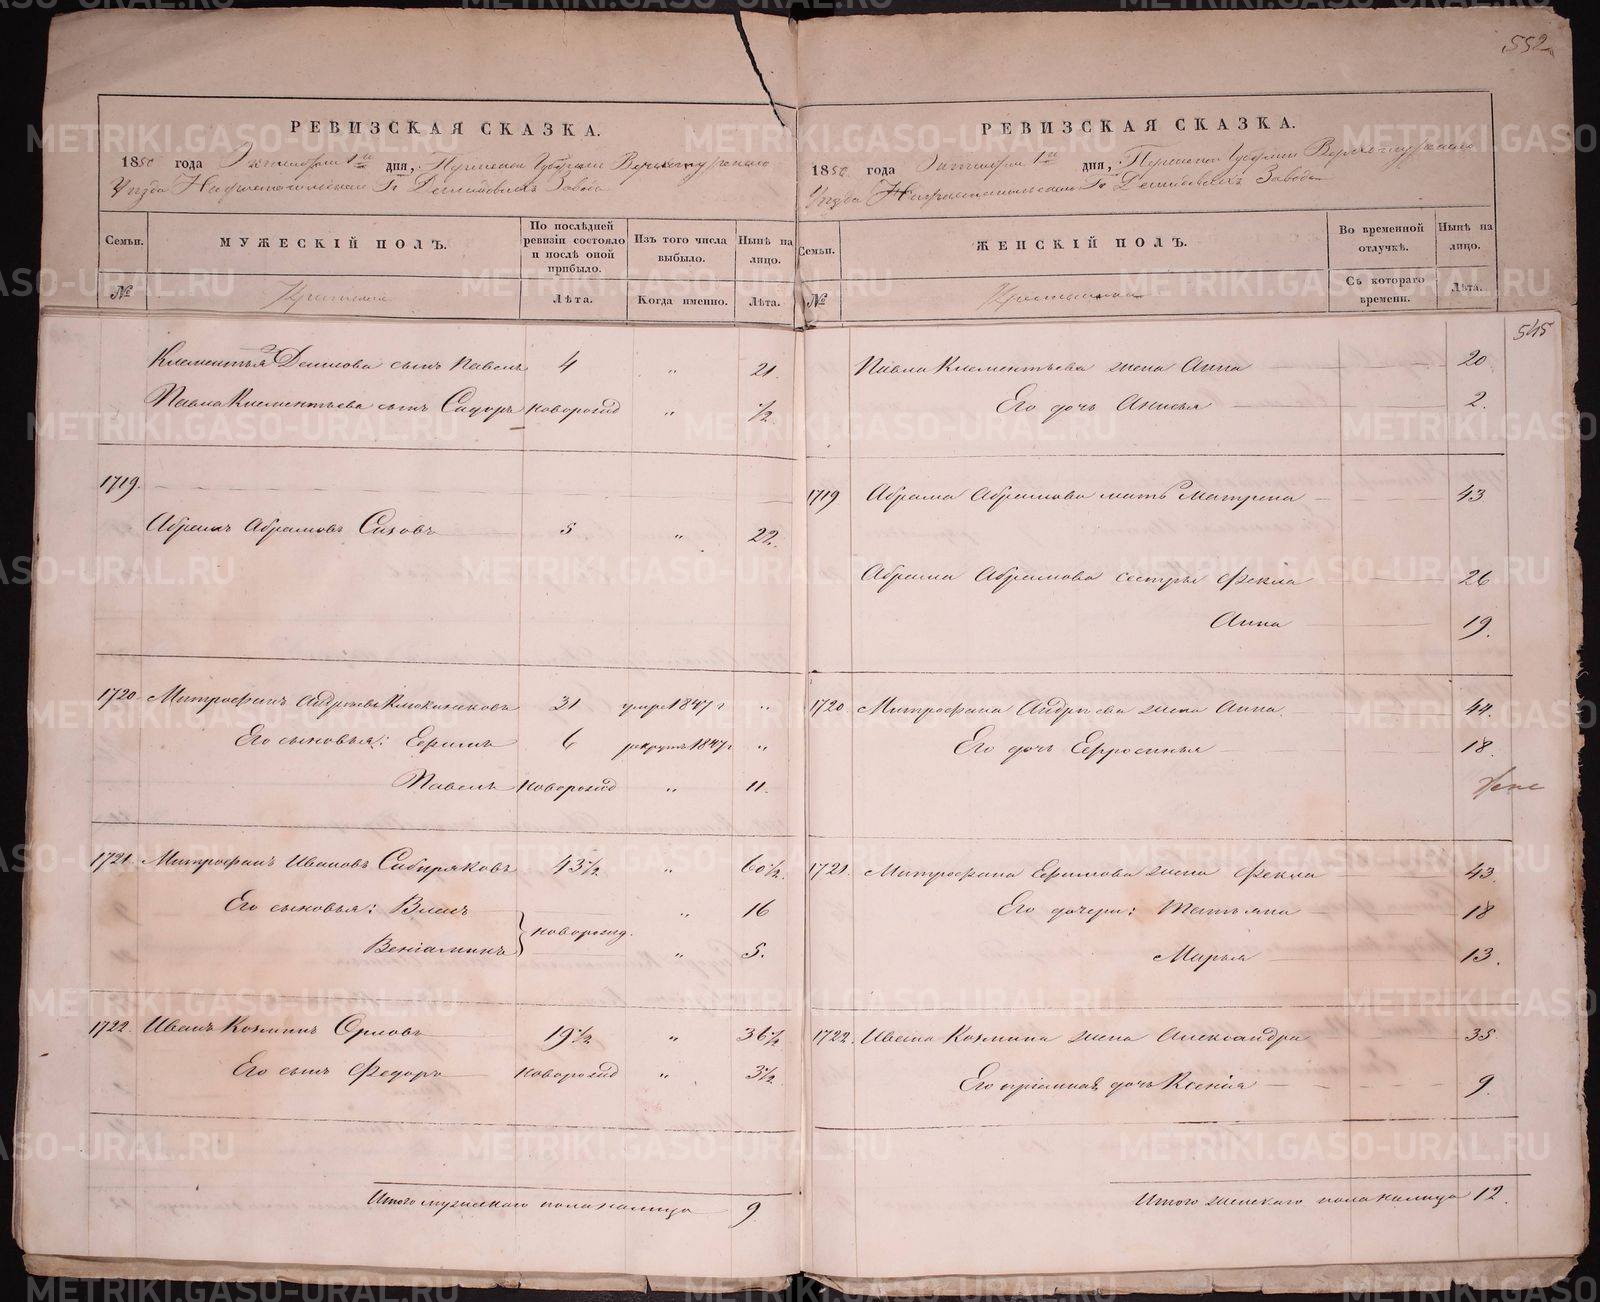 552
РЕВИЗСКАЯ СКАЗКА.
1850 года Октября 1го дня, Пермской Губернии Верхотурскаго
Уѣзда Нижнетагильскаго Гг Демидовыхъ Завода
Семьи.
МУЖЕСКІЙ ПОЛЪ.
По послѣдней ревизіи состояло и послѣ оной прибыло.
Изъ того числа выбыло.
Нынѣ на лицо.
№
Лѣта.
Когда именно.
Лѣта.
Клементья Денисова сынъ Павелъ 4 " 21.
Павла Клементьева сынъ Сидоръ новорожд " 1/2
1719.
Абрамъ Абрамовъ Сизовъ 5 " 22.
1720. Митрофанъ Андреевъ 31 умре 1847 г "
Его сыновья: Ефимъ 6 рекрутъ 1847 г "
Павелъ новорожд " 11.
1721. Митрофанъ Ивановъ Сибиряковъ 43 1/2 " 60 1/2.
Его сыновья: " 16
Веніаминъ новорожд. " 5.
1722. Иванъ Козминъ Орловъ 19 1/2 " 36 1/2
Его сынъ Федоръ новорожд " 3 1/2.
Итого мужескаго пола налицо 9
РЕВИЗСКАЯ СКАЗКА.
1850 года Октября 1го дня, Пермской Губернии Верхотурскаго
Уѣзда Нижнетагильскаго Гг Демидовыхъ Завода
Семьи.
ЖЕНСКІЙ ПОЛЪ.
Во временной отлучкѣ.
Нынѣ на лицо.
№
Съ котораго времени.
Лѣта.
545
Павла Клементьева жена Анна 20
Его дочь Анисья 2.
1719 Абрама Абрамова мать Матрена 43
Абрама Абрамова сестры Фекла 26
Анна 19.
1720. Митрофана Андреева жена Анна 44.
Его дочь Ефросинья 18
1721. Митрофана Ефимова жена Фекла 43.
Его дочери: Татьяна 18
Марья 13.
1722. Ивана Козмина жена Александра 35
Его дочь Ксенія 9.
Итого женскаго пола налицо 12.
METRIKI.GASO-URAL.RU